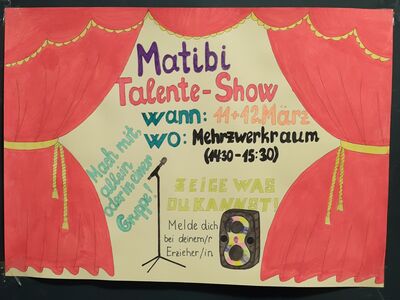 Matibi
Talente-Show
wann: 11+12März
wo: Mehrzwerkraum
(14:30-15:30)
Mach mit,
allein
oder in einer
Gruppe!
ZEIGE WAS
DU KANNST!
Melde dich
bei deinem/r
Erzieher/in